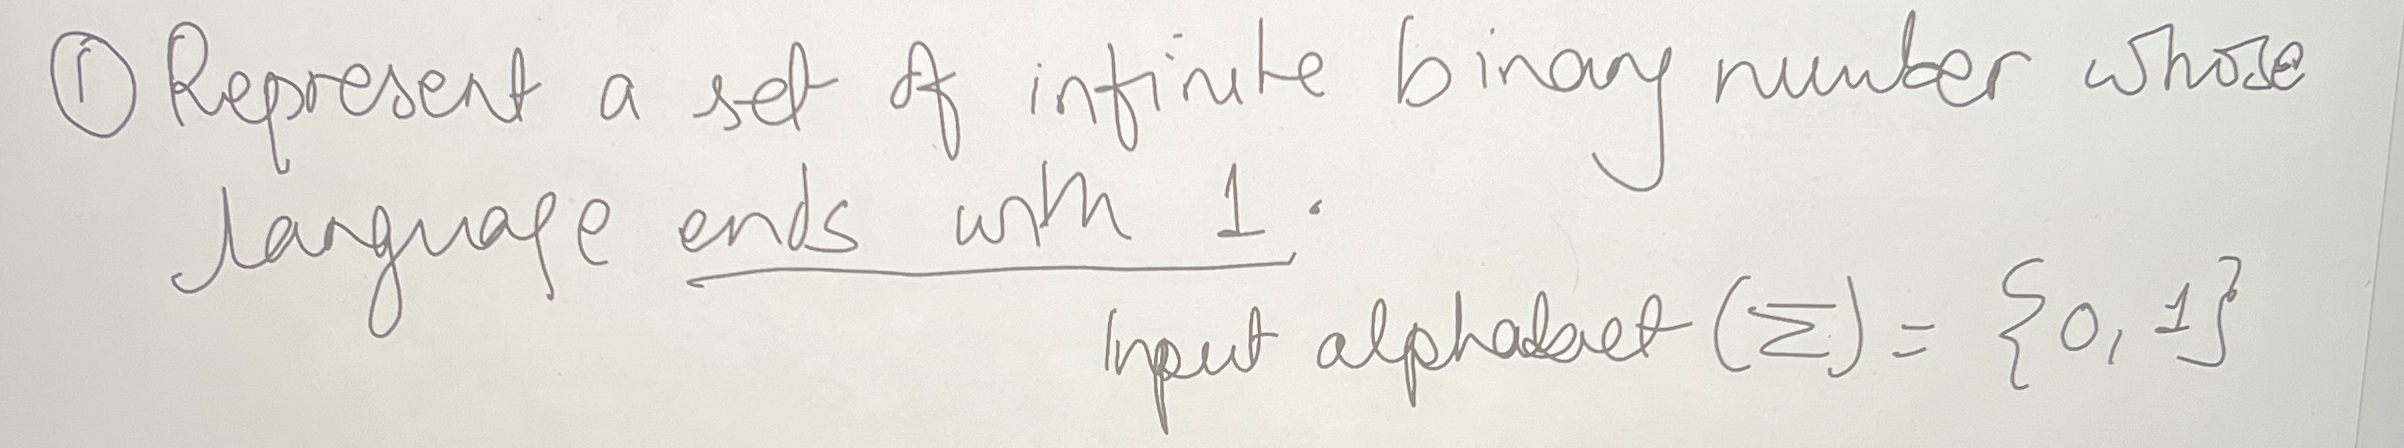 ① Represent a set of infinite binary number whose
language ends with 1.
Input alphabet (Σ) = {0, 1}